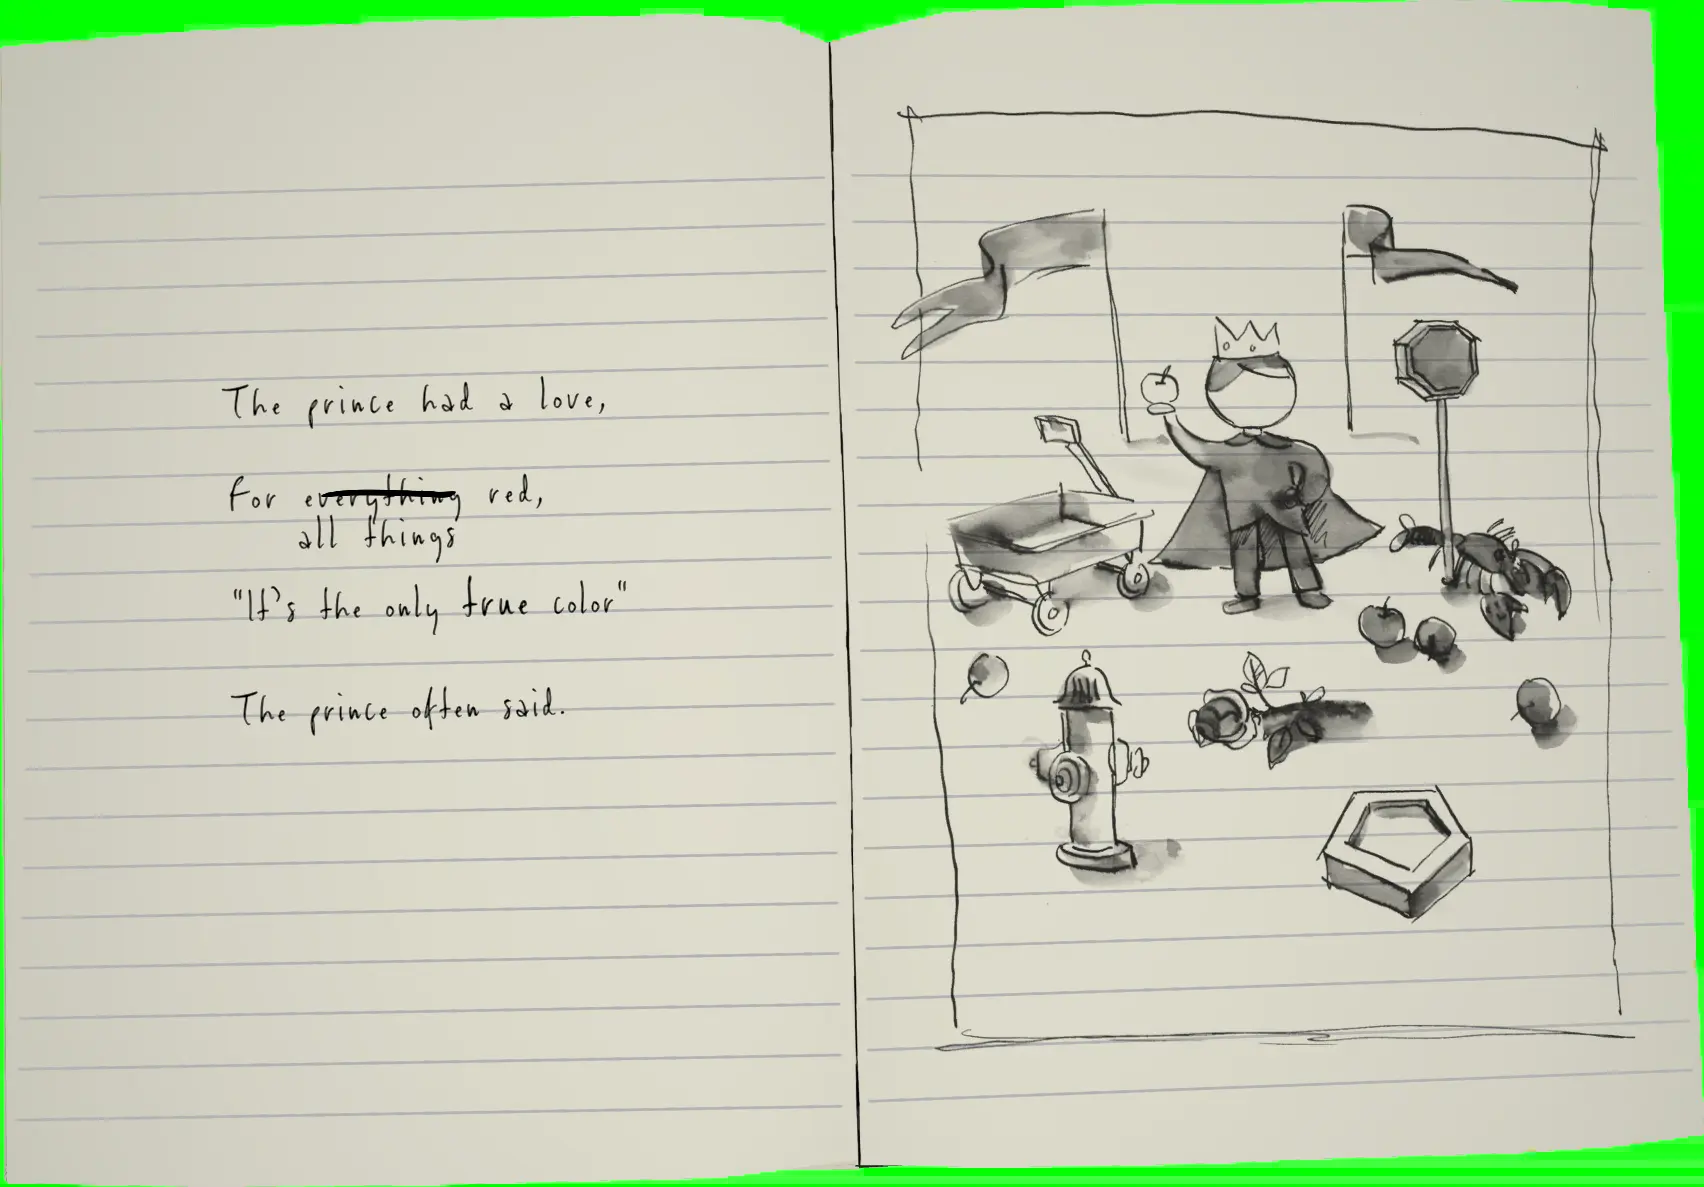 The prince had a love,
For everything red,
all things
"It's the only true color"
The prince often said.